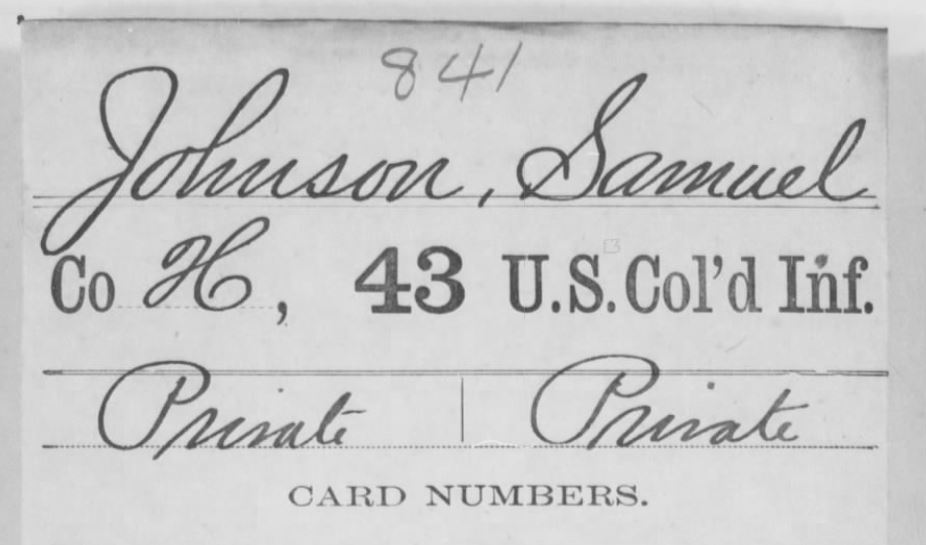 841
Johnson, Samuel
Co H, 43 U.S. Col'd Inf.
Private | Private
CARD NUMBERS.